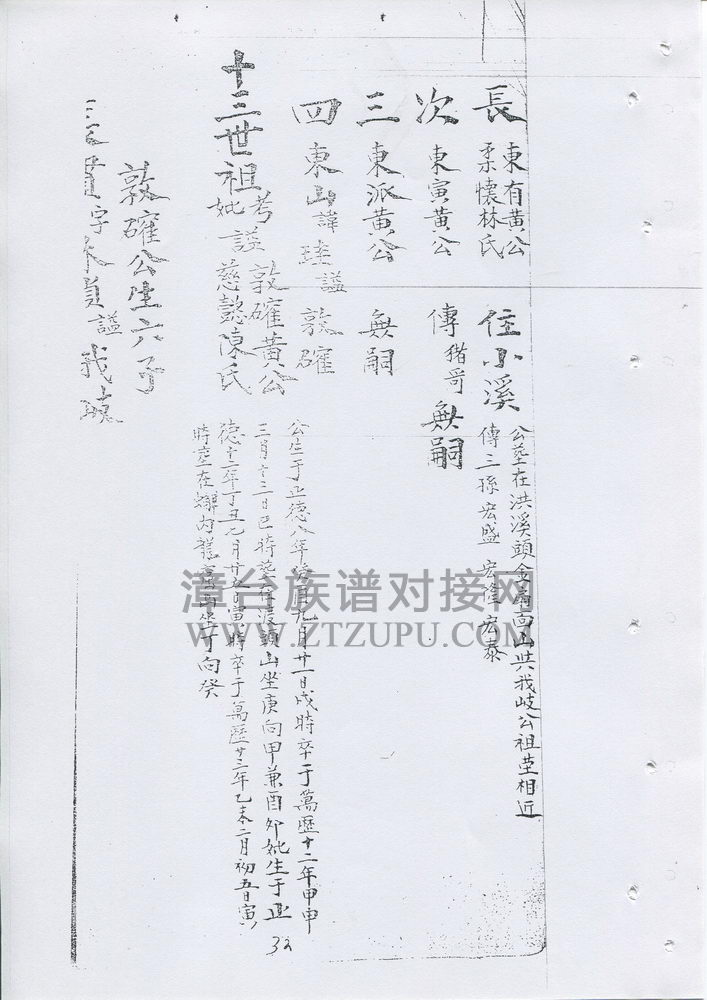 長 東有黃公
柔懷林氏
住小溪
公塋在洪溪頭金 向山共我岐公祖塋相近
傳三孫宏盛 宏隆 宏泰
次 東寅黃公
傳 猪哥 無嗣
三 東派黃公 無嗣
四 東山諱 謚敦確
十三世祖
考 敦確黃公
妣 諡 慈懿陳氏
公生于正德八年 酉九月廿一日戌時卒于萬曆十二年甲申
三月十三日巳時 在渡頭山坐庚向甲兼酉卯妣生于正
德十二年丁丑九月廿五日寅時卒于萬曆廿三年乙未二月初五日寅
時塋在 內 坐丁向癸
敦確公生六子
長 字 謚 我
32
漳台族谱对接网
WWW.ZTZUPU.COM